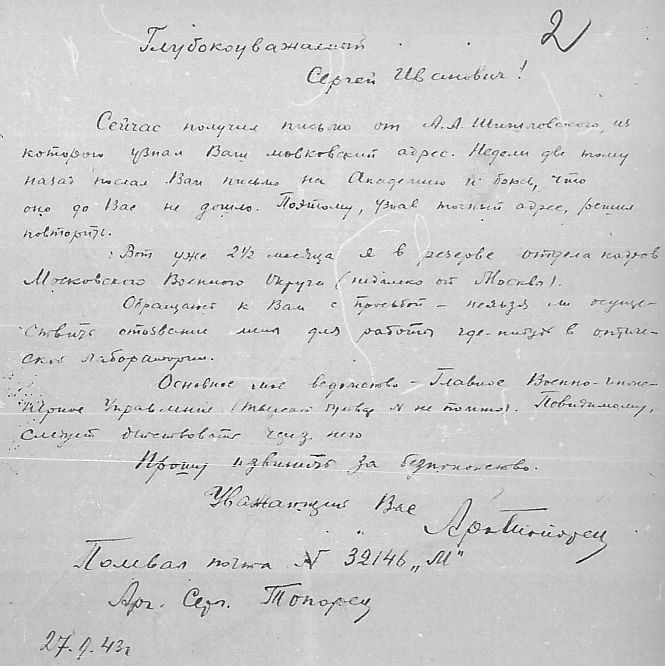 2
Глубокоуважаемый
Сергей Иванович!
Сейчас получил письмо от А.А. Шишловского, из
которого узнал Ваш московский адрес. Недели две тому
назад послал Вам письмо на Академию и боюсь, что
оно до Вас не дошло. Поэтому, узнав точный адрес, решил
повторить.
Вот уже 2½ месяца я в резерве отдела кадров
Московского Военного Округа (недалеко от Москвы).
Обращаюсь к Вам с просьбой – нельзя ли осуще-
ствить отозвание меня для работы где-нибудь в оптиче-
ской лаборатории.
Основное наше ведомство – Главное Военно-инже-
нерное Управление ( N не помню). Повидимому,
следует действовать через него
Прошу извинить за беспокойство.
Уважающий Вас
Арк Топорец
Полевая почта N 32146 „М"
Арк. Серг. Топорец
43г